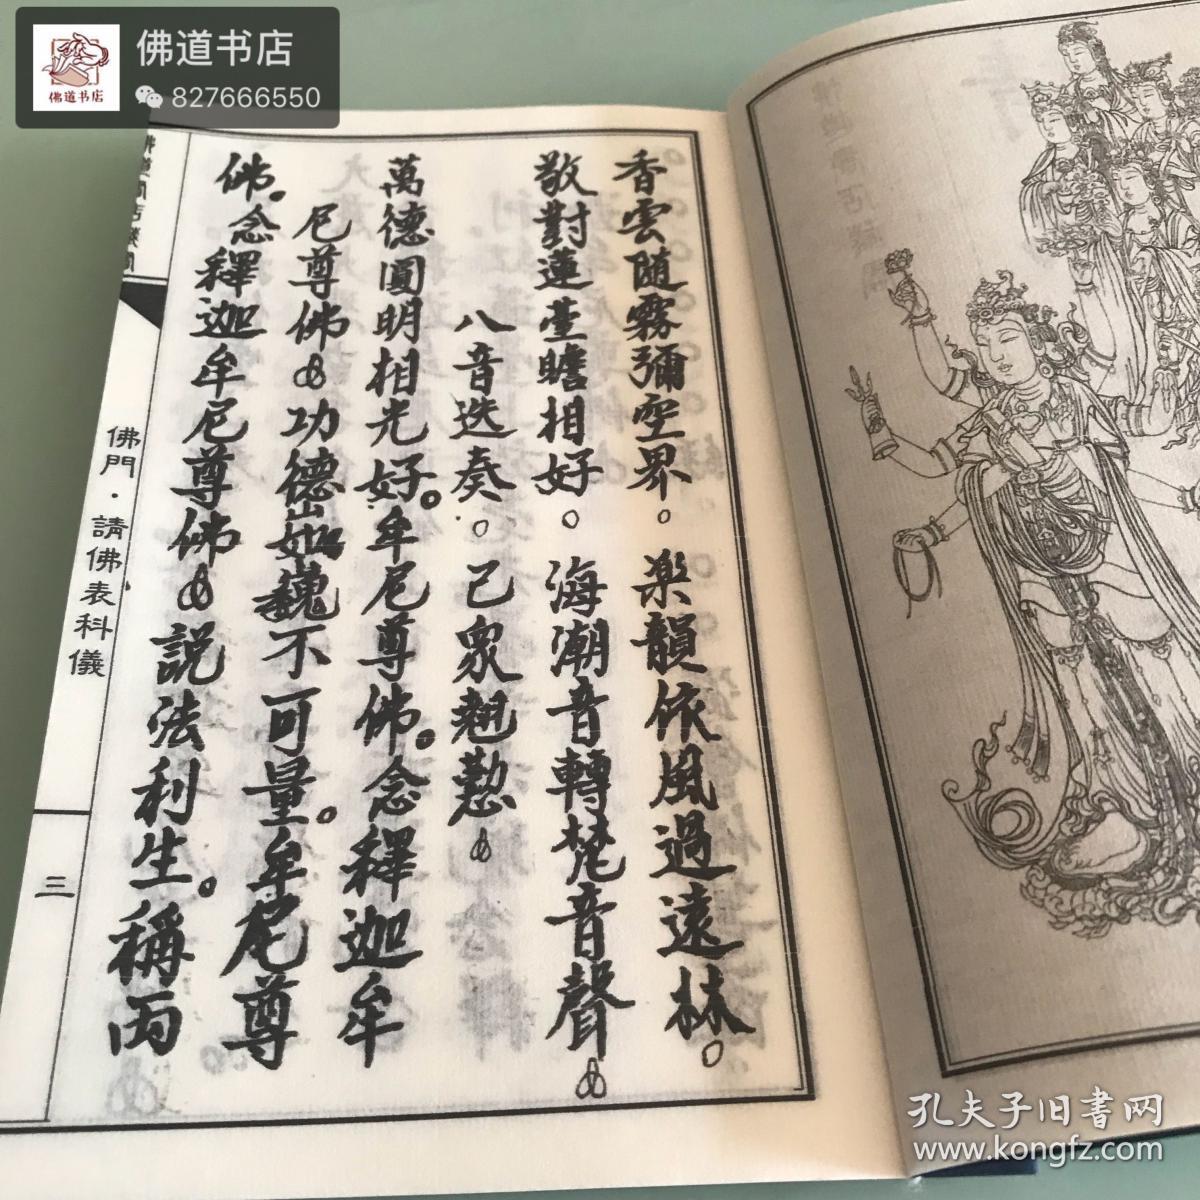 佛道书店
佛道书店
827666550
香雲随霧彌空界。楽韻依風過遠林。
敬對蓮臺瞻相好。海潮音轉梵音聲
八音迭奏。己眾翹懃
萬德圓明相光好。牟尼尊佛。念釋迦牟
尼尊佛 功德如巍不可量。牟尼尊
佛。念釋迦牟尼尊佛 説法利生。稱両
佛門·請佛表科儀
三
孔夫子旧书网
www.kongfz.com